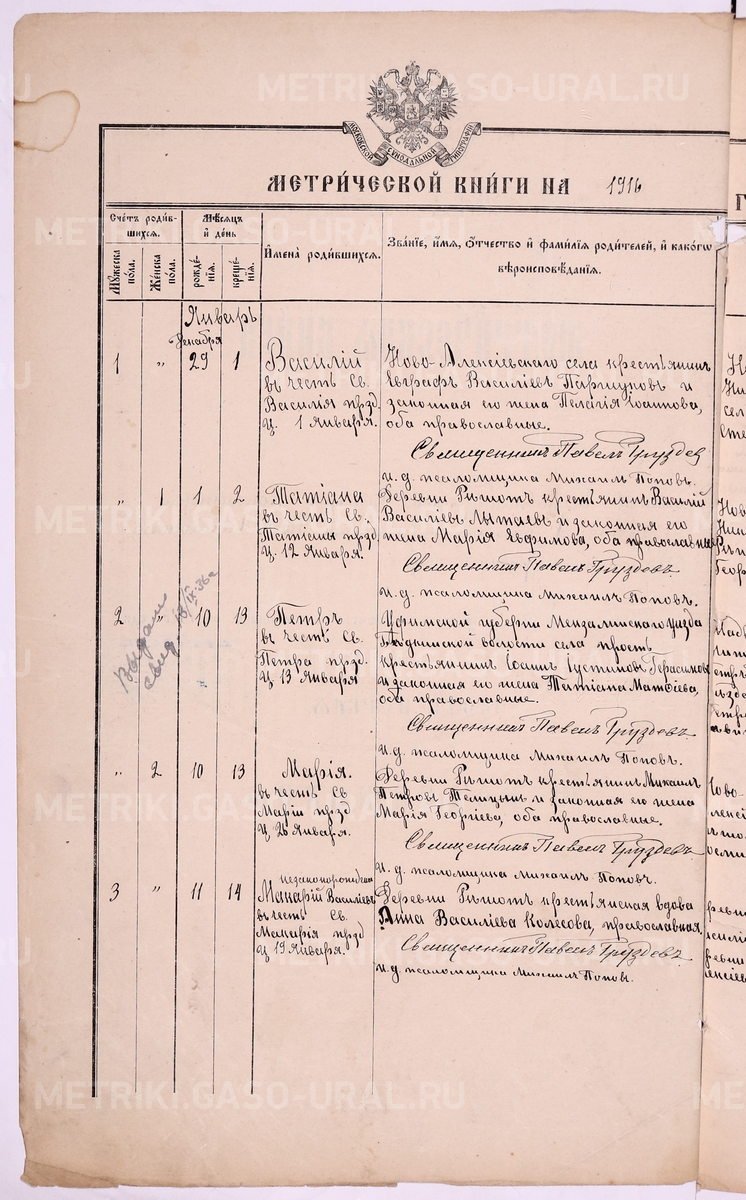 METRIKI.GASO-URAL.RU
МОСКОВСКОЙ СѴНОДАЛЬНОЙ ТИПОГРАФІИ
МЕТРИ́ЧЕСКОЙ КНИ́ГИ НА 1916
Счетъ роди́в-
шихся.
Мꙋжеска по́ла.
Же́нска по́ла.
Мѣ́сяцъ
и҆ де́нь
рожде́нїя.
креще́нїя.
И҆мена̀ роди́вшихся.
Зва́нїе, и҆́мя, ѻ҆́тчество и҆ фами́лїя роди́телей, и҆ како́гѡ
вѣроисповѣ́данїя.
Январь
декабря
1 " 29 1
Василій
въ честь Св.
Василія прзд.
ц. 1 Января.
Ново-Алексіевскаго села крестьянинъ
Евграфъ Василіевъ Паршуковъ и
законная его жена Пелагія Іоаннова,
оба православные.
Священникъ Павелъ Груздев
и. д. псаломщика Михаилъ Поповъ.
" 1 1 2
Татіана
въ честь Св.
Татіаны прзд.
ц. 12 Января.
Деревни крестьянинъ Василій
Василіевъ и законная его
жена Марія Евфимова, оба православные
Священникъ Павелъ Груздевъ.
и. д. псаломщика Михаилъ Поповъ.
2 " 10 13
Выдан
свид.
Петръ
въ честь Св.
Петра прзд.
ц 13 Января
Уфимской губерніи Мензелинскаго Уезда
волости села
крестьянинъ Іоаннъ Іустиновъ Герасимовъ
и законная его жена Татіана Матфіева,
оба православные.
Священникъ Павелъ Груздевъ.
и. д. псаломщика Михаилъ Поповъ.
" 2 10 13
Марія.
въ честь Св
Маріи прзд
ц 26 Января.
Деревни крестьянинъ Михаилъ
Петровъ Телицынъ и законная его жена
Марія Георгіева, оба православные.
Священникъ Павелъ Груздевъ
и. д. псаломщика Михаилъ Поповъ.
3 " 11 14
незаконорожденный
Макарій Василіевъ
въ честь Св.
Макарія прзд
ц 19 Января.
Деревни крестьянская вдова
Анна Василіева Колесова, православная.
Священникъ Павелъ Груздевъ.
и. д. псаломщика Михаилъ Поповъ.